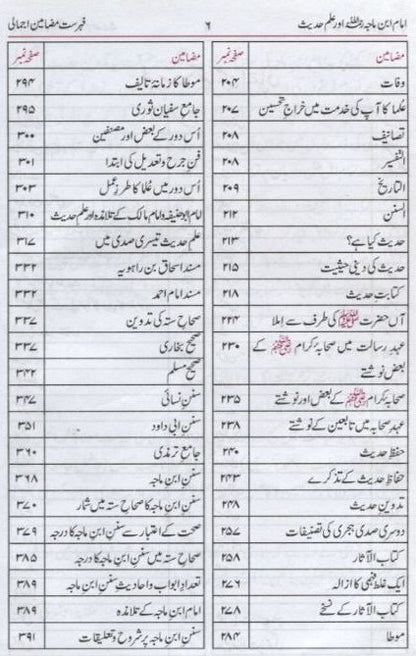 امام ابن ماجہ رحمۃ اللہ علیہ اور علم حدیث ۶ فہرست مضامین اجمالی
مضامین صفحہ نمبر
وفات ۲۰۴
علما کا آپ کی خدمت میں خراج تحسین ۲۰۷
تصانیف ۲۰۸
التفسیر ۲۰۸
التاریخ ۲۰۹
السنن ۲۱۲
حدیث کیا ہے؟ ۲۱۳
حدیث کی دینی حیثیت ۲۱۵
کتابت حدیث ۲۱۸
آں حضرت ﷺ کی طرف سے املا ۲۲۴
عہد رسالت میں صحابہ کرام رضی اللہ عنہم کے ۲۳۰
بعض نوشتے
صحابہ کرام رضی اللہ عنہم کے بعض اور نوشتے ۲۳۵
عہد صحابہ میں تابعین کے نوشتے ۲۳۸
حفظ حدیث ۲۴۰
حفاظ حدیث کے تذکرے ۲۴۳
تدوین حدیث ۲۴۸
دوسری صدی ہجری کی تصنیفات ۲۵۷
کتاب الآثار ۲۵۸
ایک غلط فہمی کا ازالہ ۲۷۶
کتاب الآثار کے نسخے ۲۷۸
موطا ۲۸۴
مضامین صفحہ نمبر
موطا کا زمانۂ تالیف ۲۹۴
جامع سفیان ثوری ۲۹۵
اس دور کے بعض اور مصنفین ۳۰۰
فن جرح وتعدیل کی ابتدا ۳۰۱
اس دور میں علما کا طرز عمل ۳۰۳
امام ابوحنیفہ وامام مالک کے تلامذہ اور علم حدیث ۳۱۰
علم حدیث تیسری صدی میں ۳۱۷
مسند اسحاق بن راہویہ ۳۳۲
مسند امام احمد ۳۳۲
صحاح ستہ کی تدوین ۳۳۷
صحیح بخاری ۳۳۷
صحیح مسلم ۳۴۲
سنن نسائی ۳۴۷
سنن ابی داود ۳۵۱
جامع ترمذی ۳۶۰
سنن ابن ماجہ ۳۶۸
سنن ابن ماجہ کا صحاح ستہ میں شمار ۳۷۰
صحت کے اعتبار سے سنن ابن ماجہ کا درجہ ۳۷۹
صحاح ستہ میں سنن ابن ماجہ کا درجہ ۳۸۵
تعداد ابواب واحادیث سنن ابن ماجہ ۳۸۹
امام ابن ماجہ کے تلامذہ ۳۸۹
سنن ابن ماجہ پر شروح وتعلیقات ۳۹۱